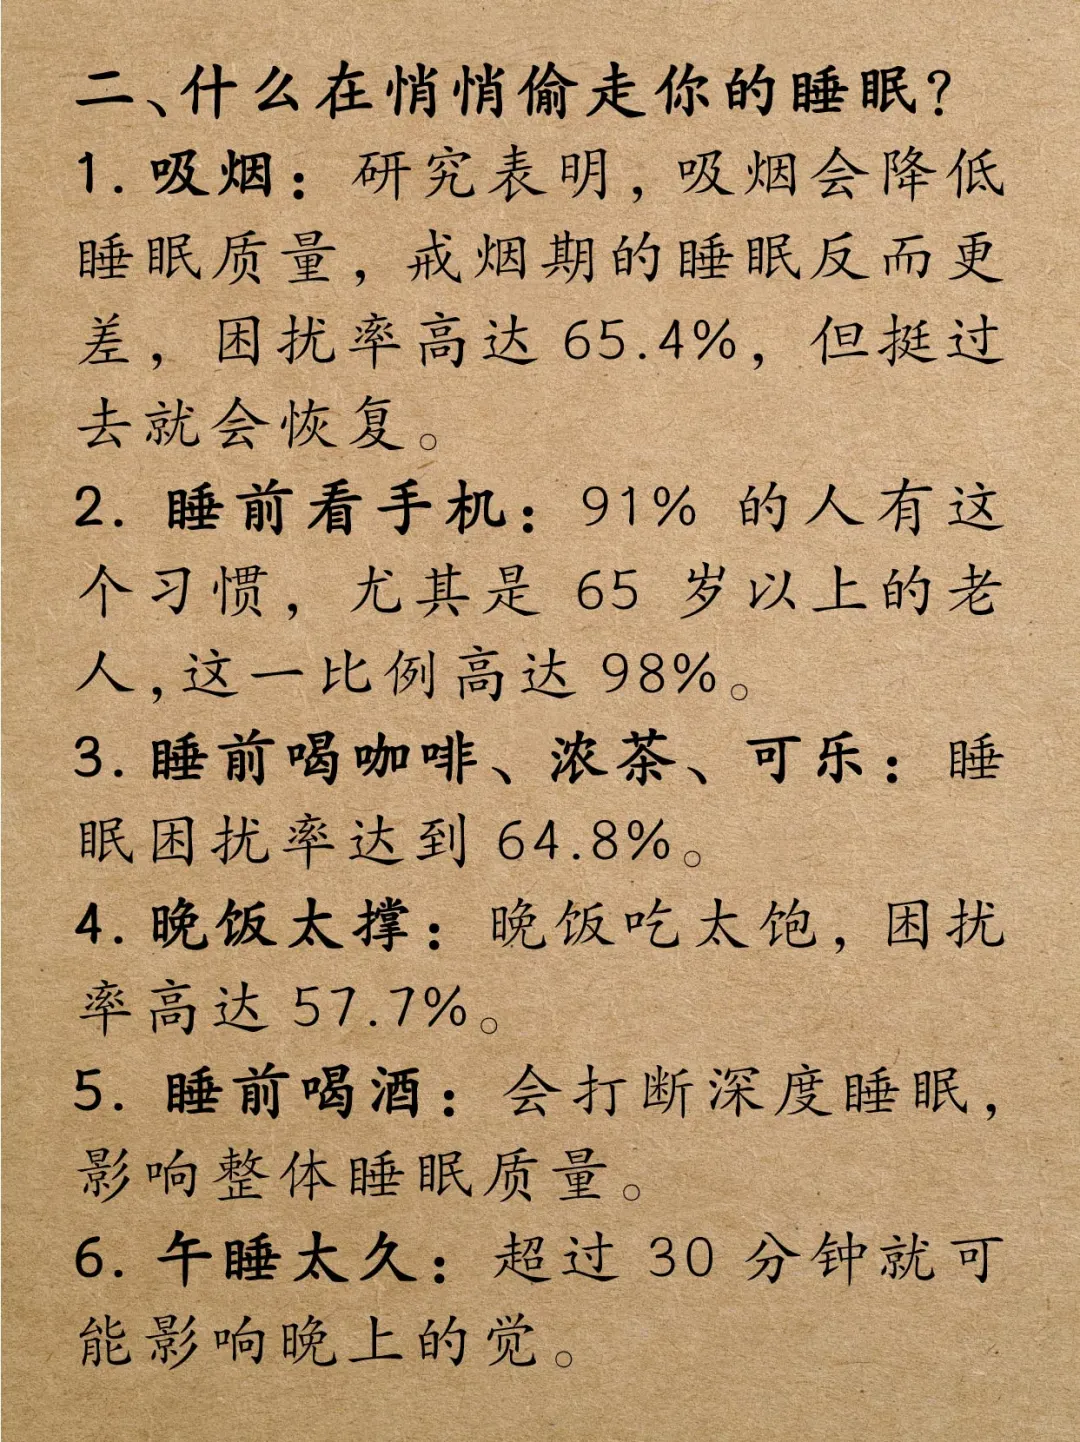 二、什么在悄悄偷走你的睡眠？
1. 吸烟：研究表明，吸烟会降低
睡眠质量，戒烟期的睡眠反而更
差，困扰率高达 65.4%，但挺过
去就会恢复。
2. 睡前看手机：91% 的人有这
个习惯，尤其是 65 岁以上的老
人，这一比例高达 98%。
3. 睡前喝咖啡、浓茶、可乐：睡
眠困扰率达到 64.8%。
4. 晚饭太撑：晚饭吃太饱，困扰
率高达 57.7%。
5. 睡前喝酒：会打断深度睡眠，
影响整体睡眠质量。
6. 午睡太久：超过 30 分钟就可
能影响晚上的觉。